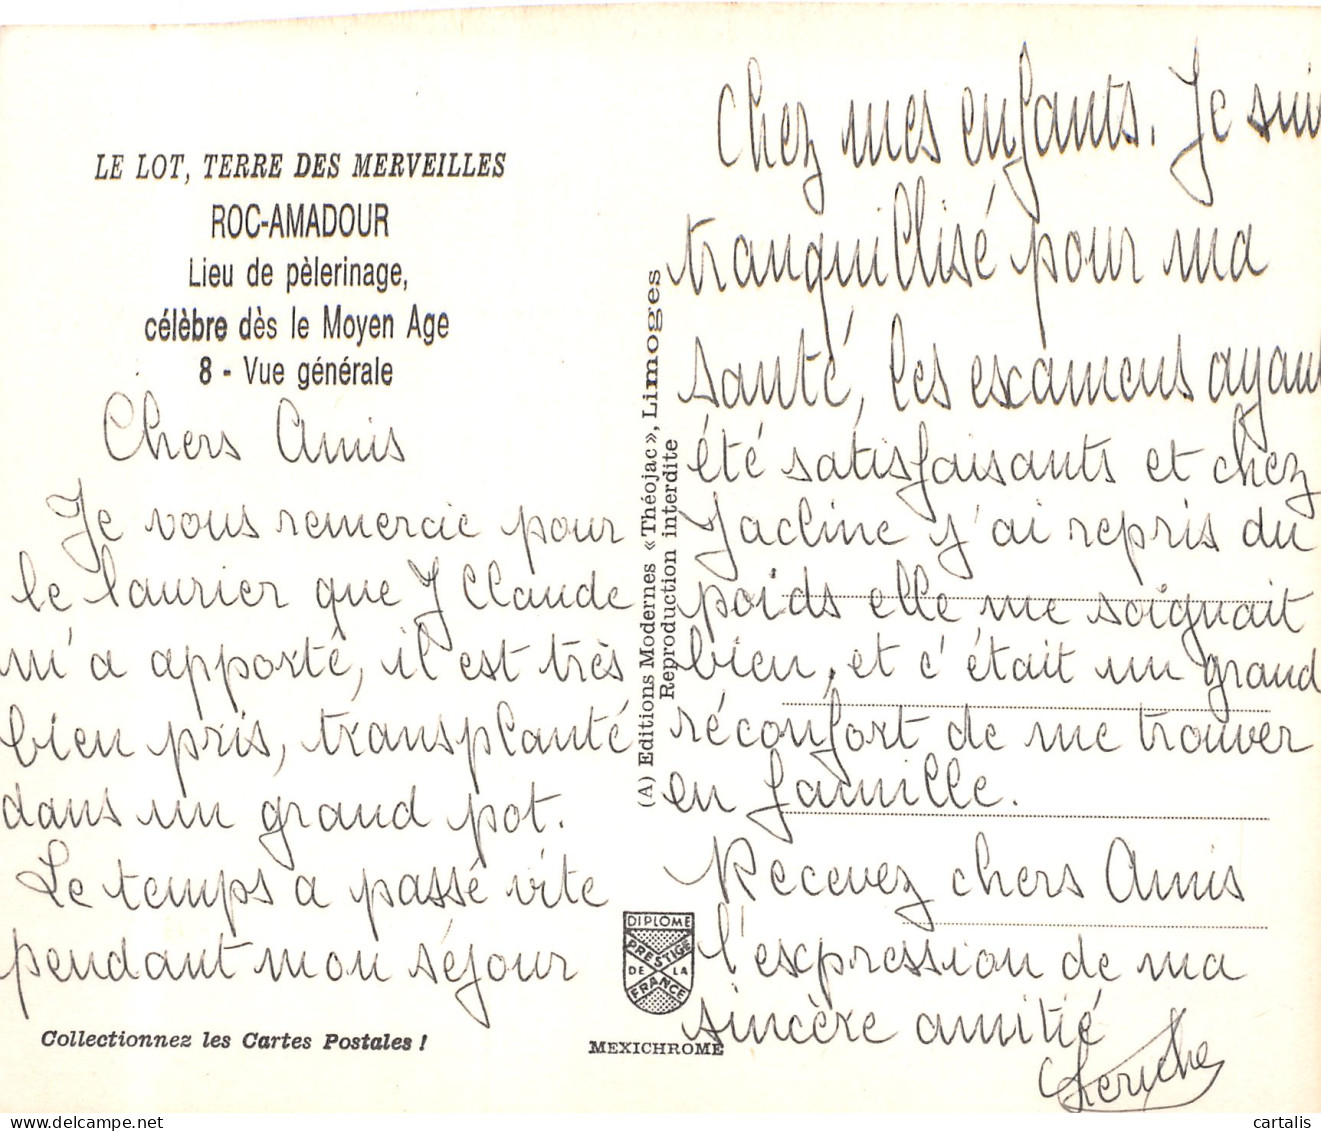 LE LOT, TERRE DES MERVEILLES
ROC-AMADOUR
Lieu de pèlerinage,
célèbre dès le Moyen Age
8 - Vue générale
Chers Amis
Je vous remercie pour
le laurier que J Claude
m'a apporté, il est très
bien pris, transplanté
dans un grand pot.
Le temps a passé vite
pendant mon séjour
Collectionnez les Cartes Postales !
(A) Editions Modernes « Théojac », Limoges
Reproduction interdite
DIPLOME
PRESTIGE
DE LA
FRANCE
MEXICHROME
Chez mes enfants. Je suis
tranquillisé pour ma
santé, les examens ayant
été satisfaisants et chez
Jacline j'ai repris du
poids elle me soignait
bien, et c'était un grand
réconfort de me trouver
en famille.
Recevez chers Amis
l'expression de ma
sincère amitié
cartalis
www.delcampe.net